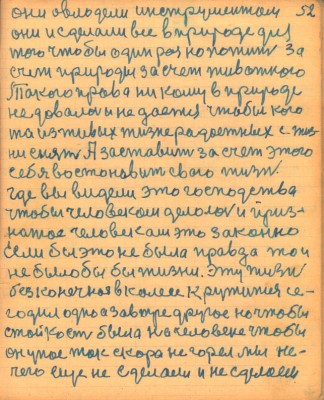 они овлодели инструментом 52
они и сделали все в природе для
того чтобы один роз копотит за
счет природы за счет животного
Такого права ни кому в природе
не довало и не дается чтобы кого
та из живых жизнерадостных с жиз
ни снят А заставит за счет этого
себя востоновит свого жизн.
где вы видели это господства
чтобы человеком делолос и приз-
натое человекам это законно
Если бы это не была правда то и
не было бы жизни. Эту жизн
бесконечноя в колесе крутится се-
годня одно а завтре другое но чтобы
стойкост была на человеке чтобы
он так скора не горел мы не-
чего еще не сделаем и не сделаем